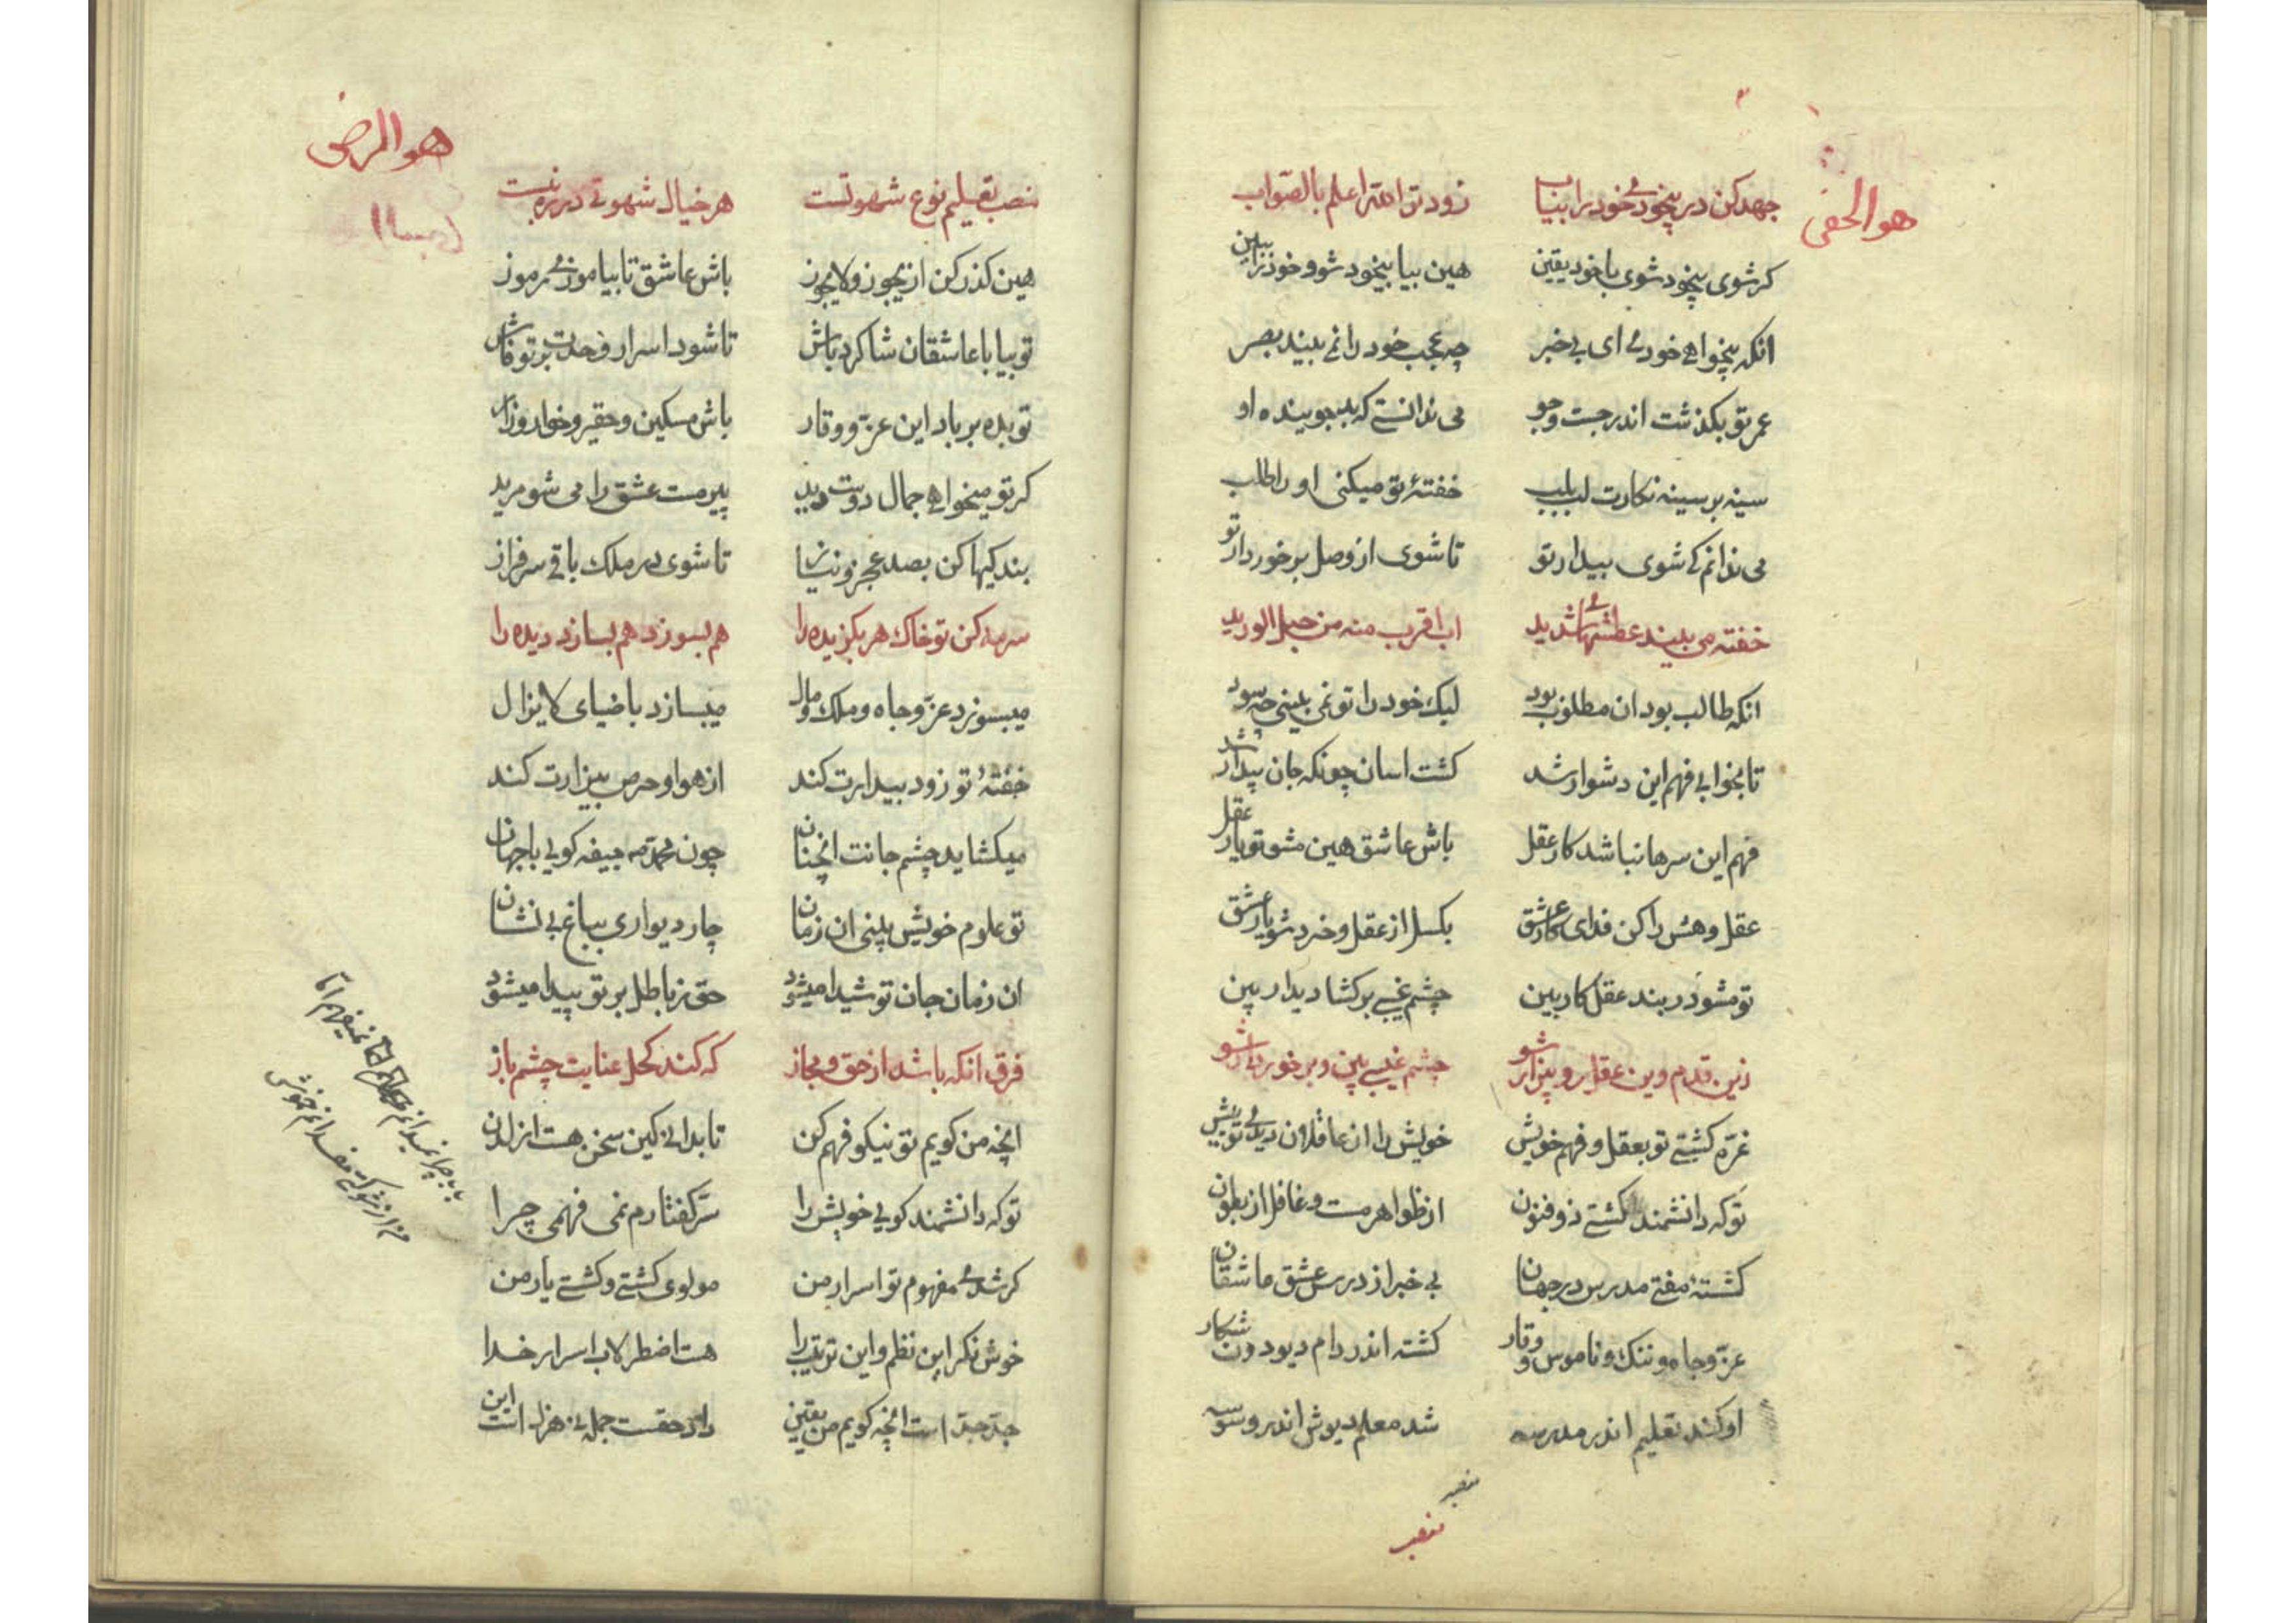 هو الحفی
جهد کن در بیخودی خود را بیاب زود تر الله اعلم بالصواب
کر شوی بیخود شوی با خود یقین هین بیا بیخود شو و خود را ببین
انکه میخواهی خودئی ای بی خبر چه عجب خود را نمی بیند بصر
عمر تو بکذشت اندر جست وجو می ندانستی که بد جوینده او
سینه بر سینه نکارت لب بلب خفتهٔ تو میکنی او را طلب
می ندانم کی شوی بیدار تو تا شوی از وصل برخوردار تو
خفته می بیند عطشهای شدید اب اقرب منه من حبل الورید
انکه طالب بود ان مطلوب بود لیک خود را تو نمی بینی چه سود
تا بخوابی فهم این دشوار شد کشت اسان چونکه جان بیدار شد
فهم این سرها نباشد کار عقل باش عاشق هین مشو تو یار عقل
عقل و هش را کن فدای کار عشق بکسل از عقل و خرد شو یار عشق
تو مشو در بند عقل کار بین چشم غیبی بر کشا دیدار بین
زین قدم وین عقل رو بیزار شو چشم غیبی بین و برخوردار شو
غره کشتی تو بعقل و فهم خویش خویش را از عاقلان دیدی تو بیش
تو که دانشمند کشتی ذو فنون از ظواهر مست و غافل از بطون
کشتهٔ مفتی مدرس در جهان بی خبر از درس عشق عاشقان
عز و جاه و ننک و ناموس و وقار کشته اندر دام دیو دون شکار
او کند تعلیم اندر مدرسه شد معلم دیوش اندر وسوسه
منصب
منصب
هو المرضی
منصب تعلیم نوع شهوتست هر خیال شهوتی در ره بتست
هین کذر کن از یجوز و لایجوز باش عاشق تا بیاموزی رموز
تو بیا با عاشقان شاکرد باش تا شود اسرار وحدت بر تو فاش
تو بده بر باد این عز و وقار باش مسکین و حقیر و خوار و زار
کر تو میخواهی جمال دوست دید پیر مست عشق را می شو مرید
بندکیها کن بصد عجز و نیاز تا شوی در ملک باقی سرفراز
سرمه کن تو خاک هر بکزیده را هم بسوزد هم بسازد دیده را
میبسوزد عز و جاه و ملک و مال میبسازد با ضیای لایزال
خفتهٔ تو زود بیدارت کند از هوا و حرص بیزارت کند
میکشاید چشم جانت انچنان چون محمد مه جیفه کویی با جهان
تو علوم خویش بینی ان زمان چار دیواری بباغ بی نشان
ان زمان جان تو شیدا میشود حق ز باطل بر تو پیدا میشود
فرق انکه باشد از حق و مجاز که کند کحل عنایت چشم باز
انچه من کویم تو نیکو فهم کن تا بدانی کین سخن هست از لدن
تو که دانشمند کویی خویش را سر کفتارم نمی فهمی چرا
کر شدی مفهوم تو اسرار من مولوی کشتی و کشتی یار من
خوش نکر این نظم و این ترتیب را هست اضطرلاب اسرار خدا
جد جد است انچه کویم من یقین داد حقست جمله نی هزل است این